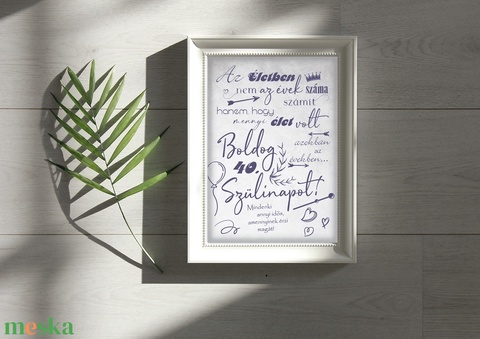 Az Életben
nem az évek száma
számít
hanem, hogy
mennyi élet volt
azokban
az
években...
Boldog
40.
Szülinapot!
Mindenki
annyi idős,
amennyinek érzi
magát!
meska